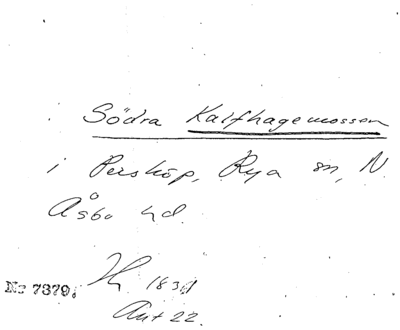 Södra Kalfhagemossen
i Perstorp, Rya sn, N.
Åsbo hd.
No 7379.
Akt 22.